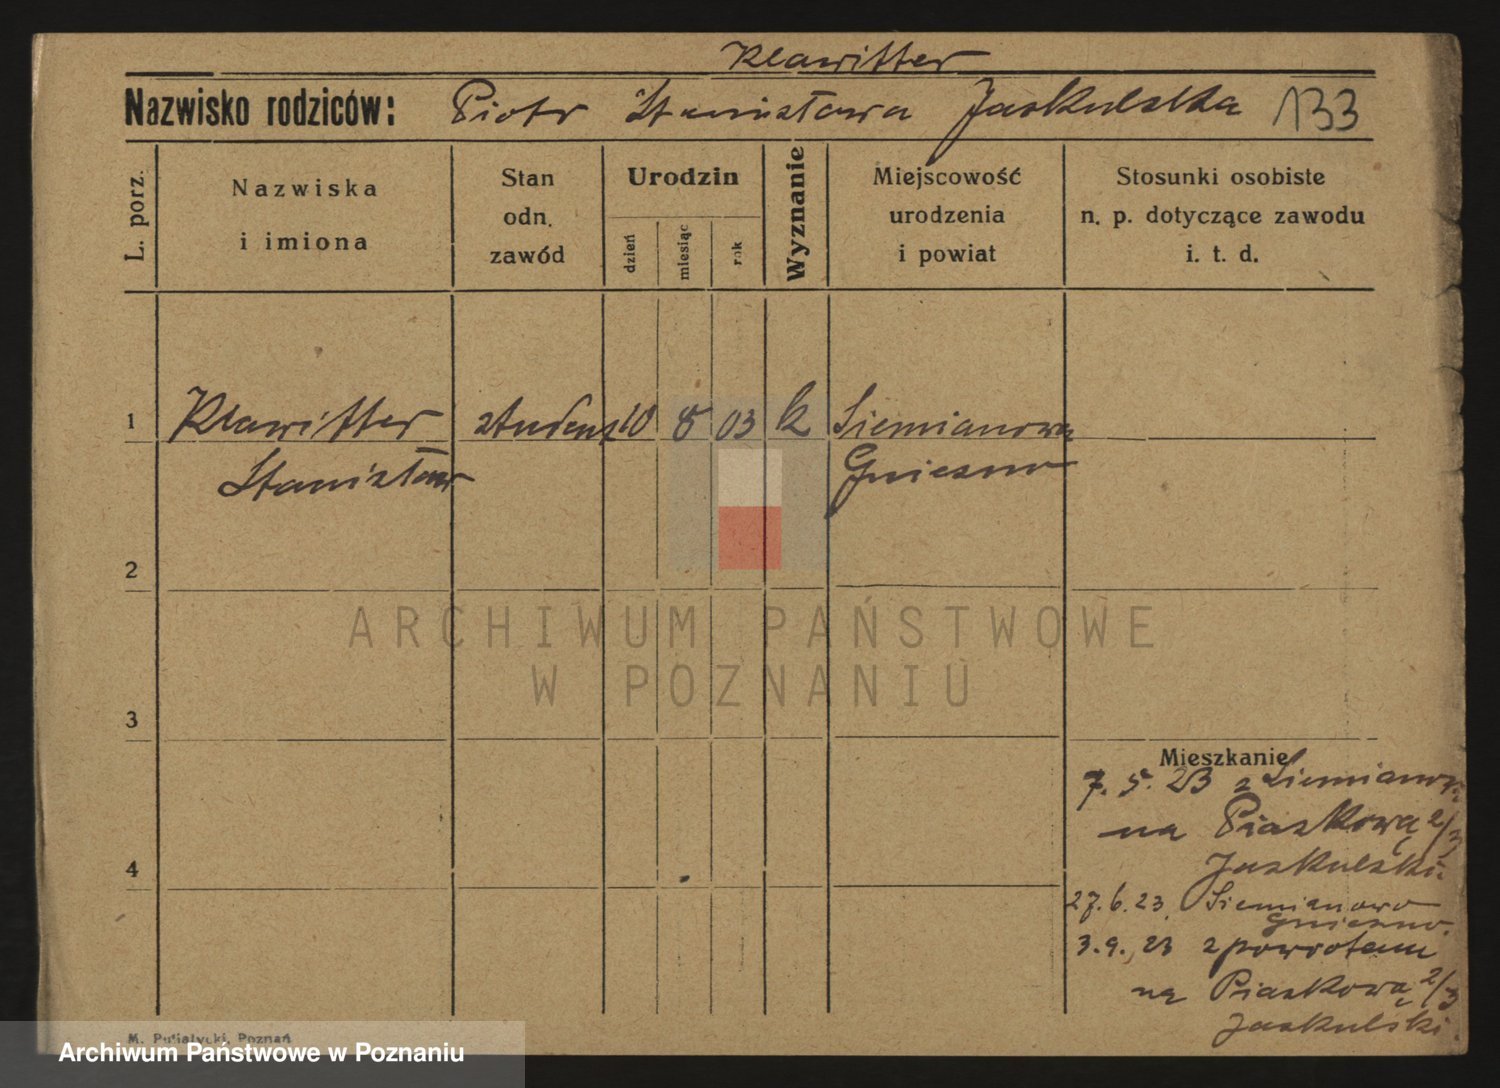 Klawitter
Nazwisko rodziców: Piotr Stanisława Jaskulska 133
L. porz.
Nazwiska
i imiona
Stan
odn.
zawód
Urodzin
dzień
miesiąc
rok
Wyznanie
Miejscowość
urodzenia
i powiat
Stosunki osobiste
n. p. dotyczące zawodu
i. t. d.
1 Klawitter student 10 8 03 k Siemianowo
Stanisław Gniezno
2
ARCHIWUM PAŃSTWOWE
W POZNANIU
3
Mieszkanie
7. 5. 23 z Siemianowa
na Piaskową 2/3
Jaskulski
4
27. 6. 23 Siemianowo
Gniezno.
3. 9. 23 z powrotem
na Piaskową 2/3
Jaskulski
M. Putiatycki, Poznań
Archiwum Państwowe w Poznaniu